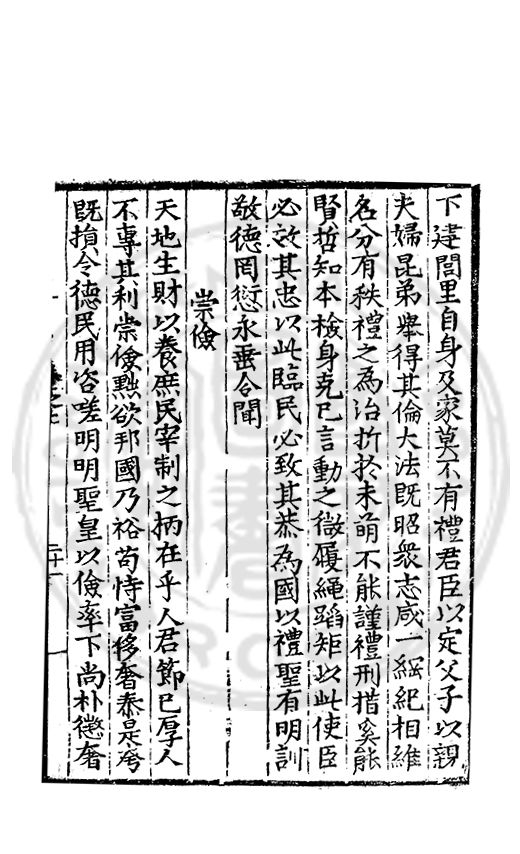 下達閭里自身及家莫不有禮君臣以定父子以親
夫婦昆弟舉得其倫大法既昭衆志咸一綱紀相維
名分有秩禮之為治折於未萌不能謹禮刑措奚能
賢哲知本檢身克己言動之微履繩蹈矩以此使臣
必效其忠以此臨民必致其恭為國以禮聖有明訓
敬德罔愆永垂令聞
崇儉
天地生財以養庶民宰制之柄在乎人君節已厚人
不專其利崇儉黜欲邦國乃裕苟恃富侈奢泰是夸
既損令德民用咨嗟明明聖皇以儉率下尚朴懲奢